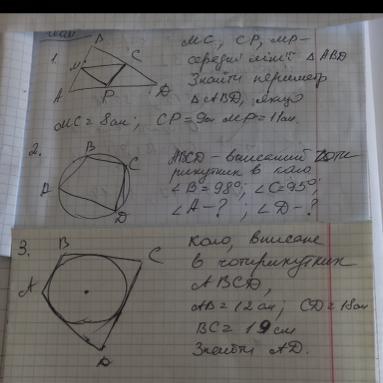 1. MC, CP, MP –
середні лінії △ ABD
Знайти периметр
△ ABD, якщо
MC = 8см; CP = 9см MP = 11см.
B
M C
A P D
2. ABCD – вписаний чоти
рикутник в коло
∠B = 98°; ∠C = 95°;
∠A – ? ; ∠D – ?
B
C
A
D
3. Коло, вписане
в чотирикутник
ABCD,
AB = 12см; CD = 18см
BC = 19 см
Знайти AD.
B
C
A
D